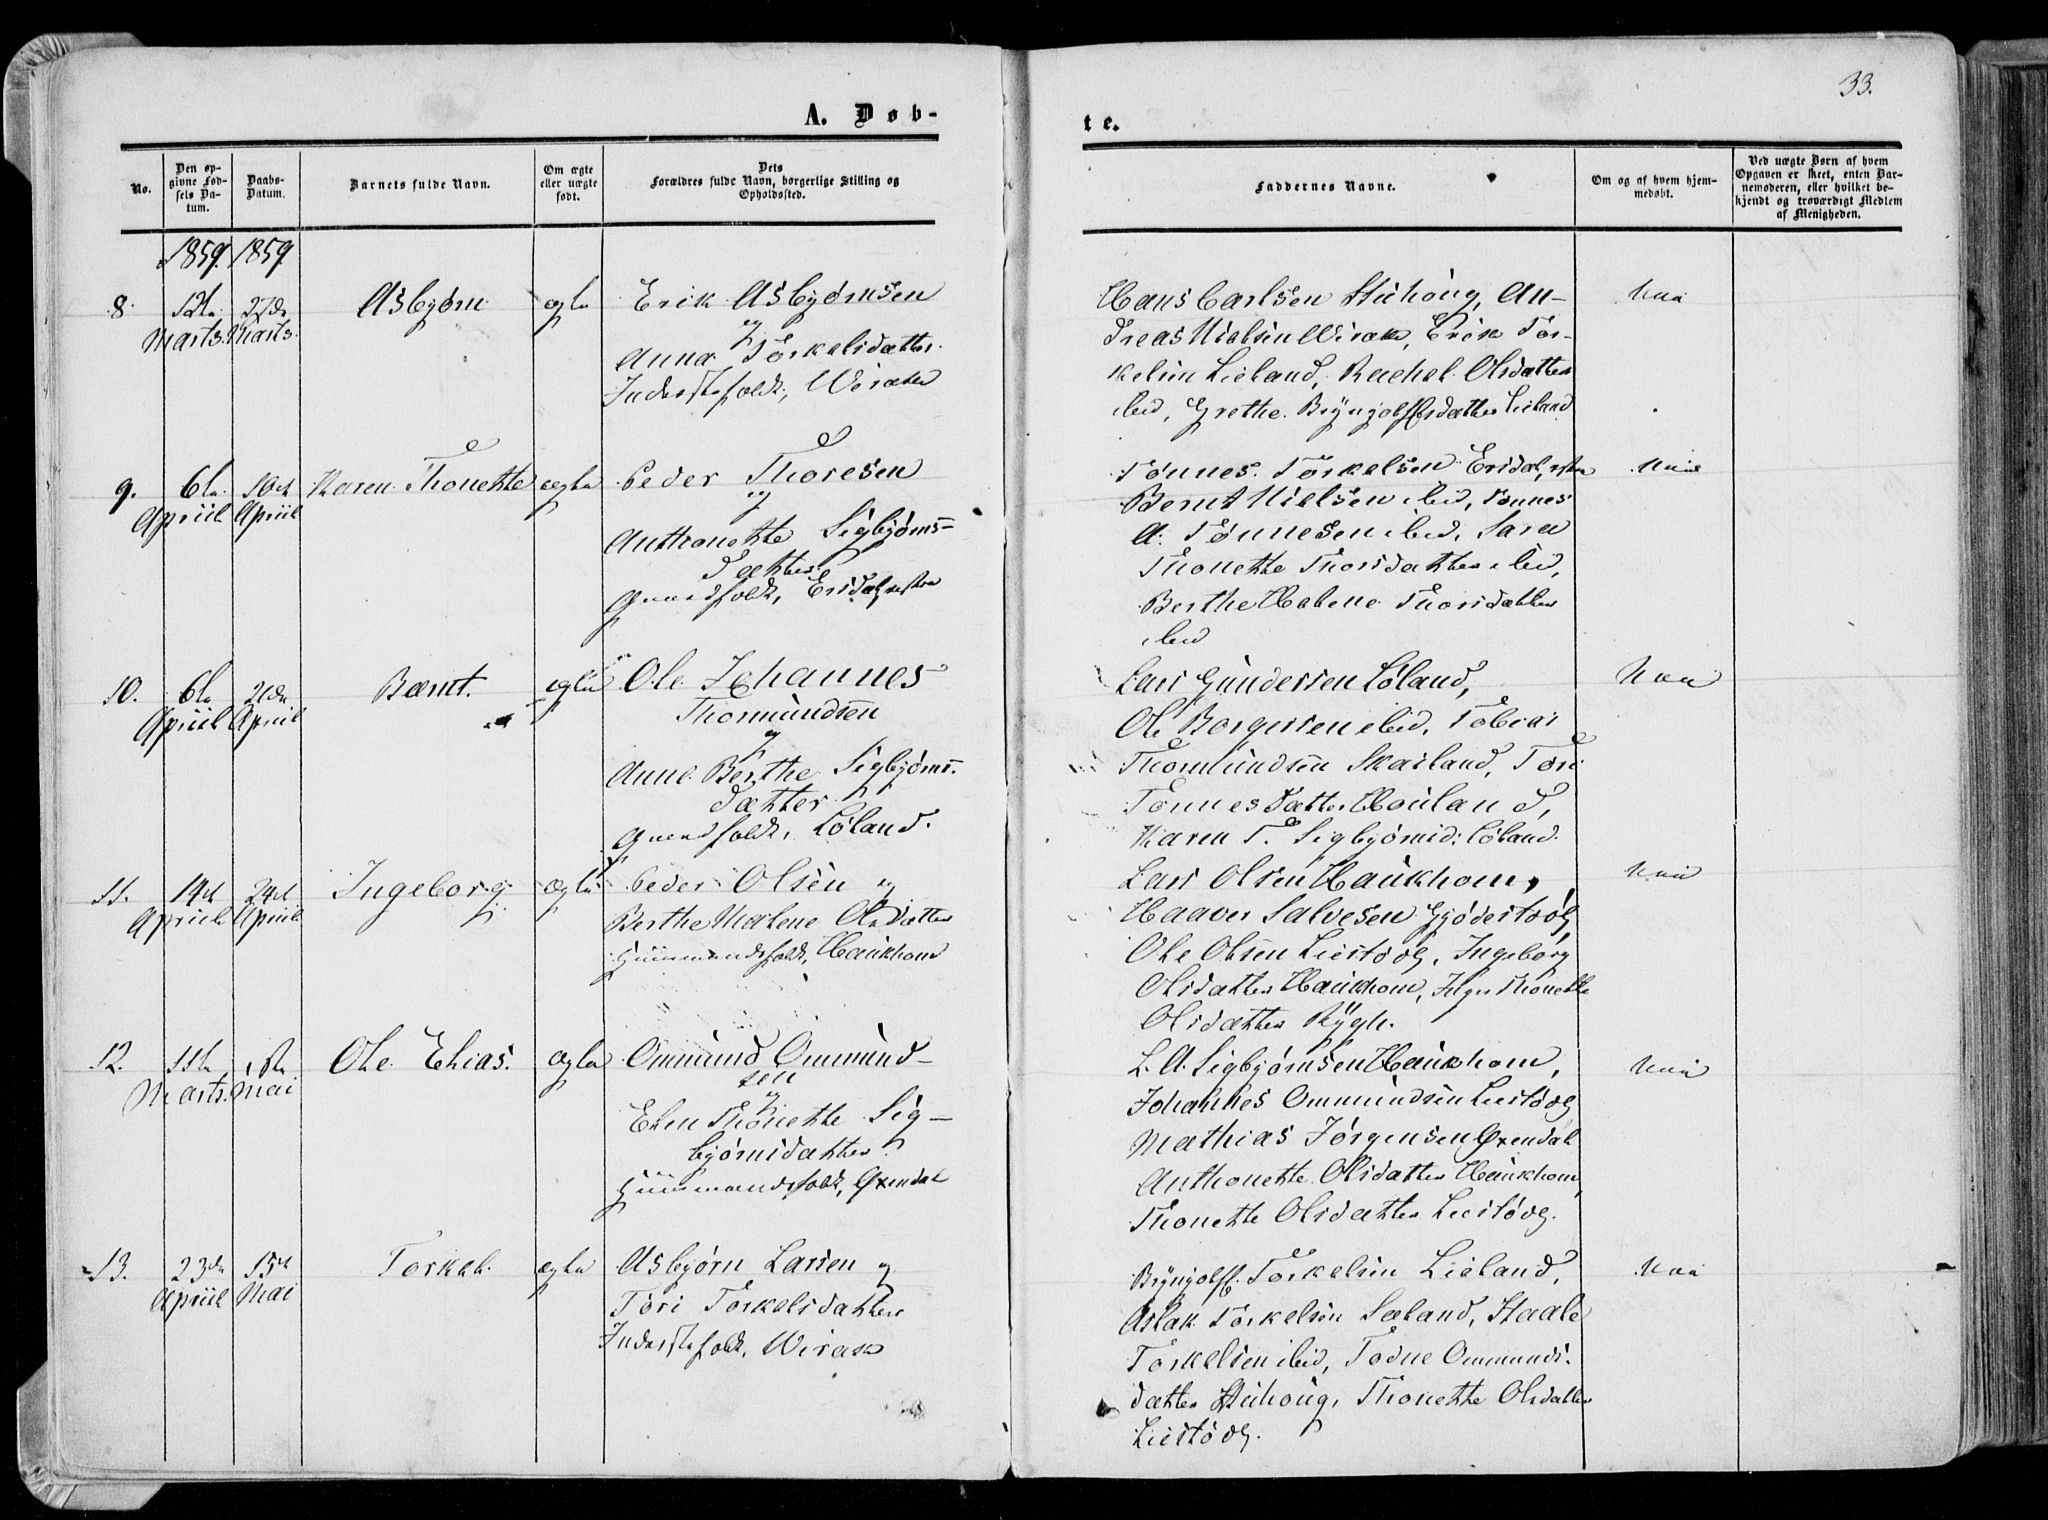 33.
A. Døb-
te.
No.
Den op-
givne Fød-
sels Da-
tum.
Daabs-
Datum.
Barnets fulde Navn.
Om ægte
eller uægte
født.
Dets
Forældres fulde Navn, borgerlige Stilling og
Opholdssted.
Faddernes Navne.
Om og af hvem hjem-
medøbt.
Ved uægte Børn af hvem
Opgaven er skeet, enten Bar-
nemoderen, eller hvilket be-
kjendt og troværdigt Medlem
af Menigheden.
1859. 1859.
8. 12te 27de Asbjørn ægte Erik Asbjørnsen
Marts. Marts. og
Anna Torkelsdatter
Inderstefolk, Wirak
Hans Carlsen Stuhoug, An-
dreas Nielsen Wirak, Erik Tor-
kelsen Lieland, Rachel Olsdatter
ibid, Grethe Bryngjolfsdatter Lieland
Nei
9. 6te 10de Karen Thonette ægte Peder Thoresen
Apriil Apriil og
Anthonette Sigbjørns-
datter
Gaardfolk, Eridal, vestre
Tønnes Torkelsen Eridal, vestre
Bernt Nielsen ibid, Tønnes
A. Tønnesen ibid, Sara
Thonette Thorsdatter ibid,
Berthe Helene Thorsdatter
ibid
Nei
10. 6te 21de Bernt. ægte Ole Johannes
Apriil Apriil Thormundsen
og
Anne Berthe Sigbjørns-
datter
Gaardfolk, Løland.
Lars Gundersen Løland,
Ole Borgersen ibid, Tobias
Thormundsen Skailand, Tori
Tønnesdatter Houland,
Karen T. Sigbjørnsd: Løland.
Nei
11. 14de 24de Ingeborg ægte Peder Olsen og
Apriil Apriil Berthe Malene Olsdatter
Huusmandsfolk, Haukhom
Lars Olsen Haukhom,
Haaver Salvesen Gjødestøl,
Ole Olsen Liestøøl, Ingeborg
Olsdatter Haukhom, Inger Thonette
Olsdatter Rygh.
Nei
12. 11te 1ste Ole Elias. ægte Ommund Ommund-
Marts. Mai sen
og
Elen Thonette Sig-
bjørnsdatter
Huusmandsfolk, Oxendal
L. A. Sigbjørnsen Haukhom,
Johannes Ommundsen Liestøøl
Mathias Jørgensen Oxendal
Anthonette Olsdatter Haukhom,
Thonette Olsdatter Liestøøl.
Nei
13. 23de 15de Torkel. ægte Asbjørn Larsen og
Apriil Mai Tori Torkelsdatter
Inderstefolk, Wirak
Bryngjolf Torkelsen Lieland,
Aslak Torkelsen Sæland, Staale
Torkelsen ibid, Todne Ommunds-
datter Stuhoug, Thonette Olsdatter
Liestøøl.
Nei